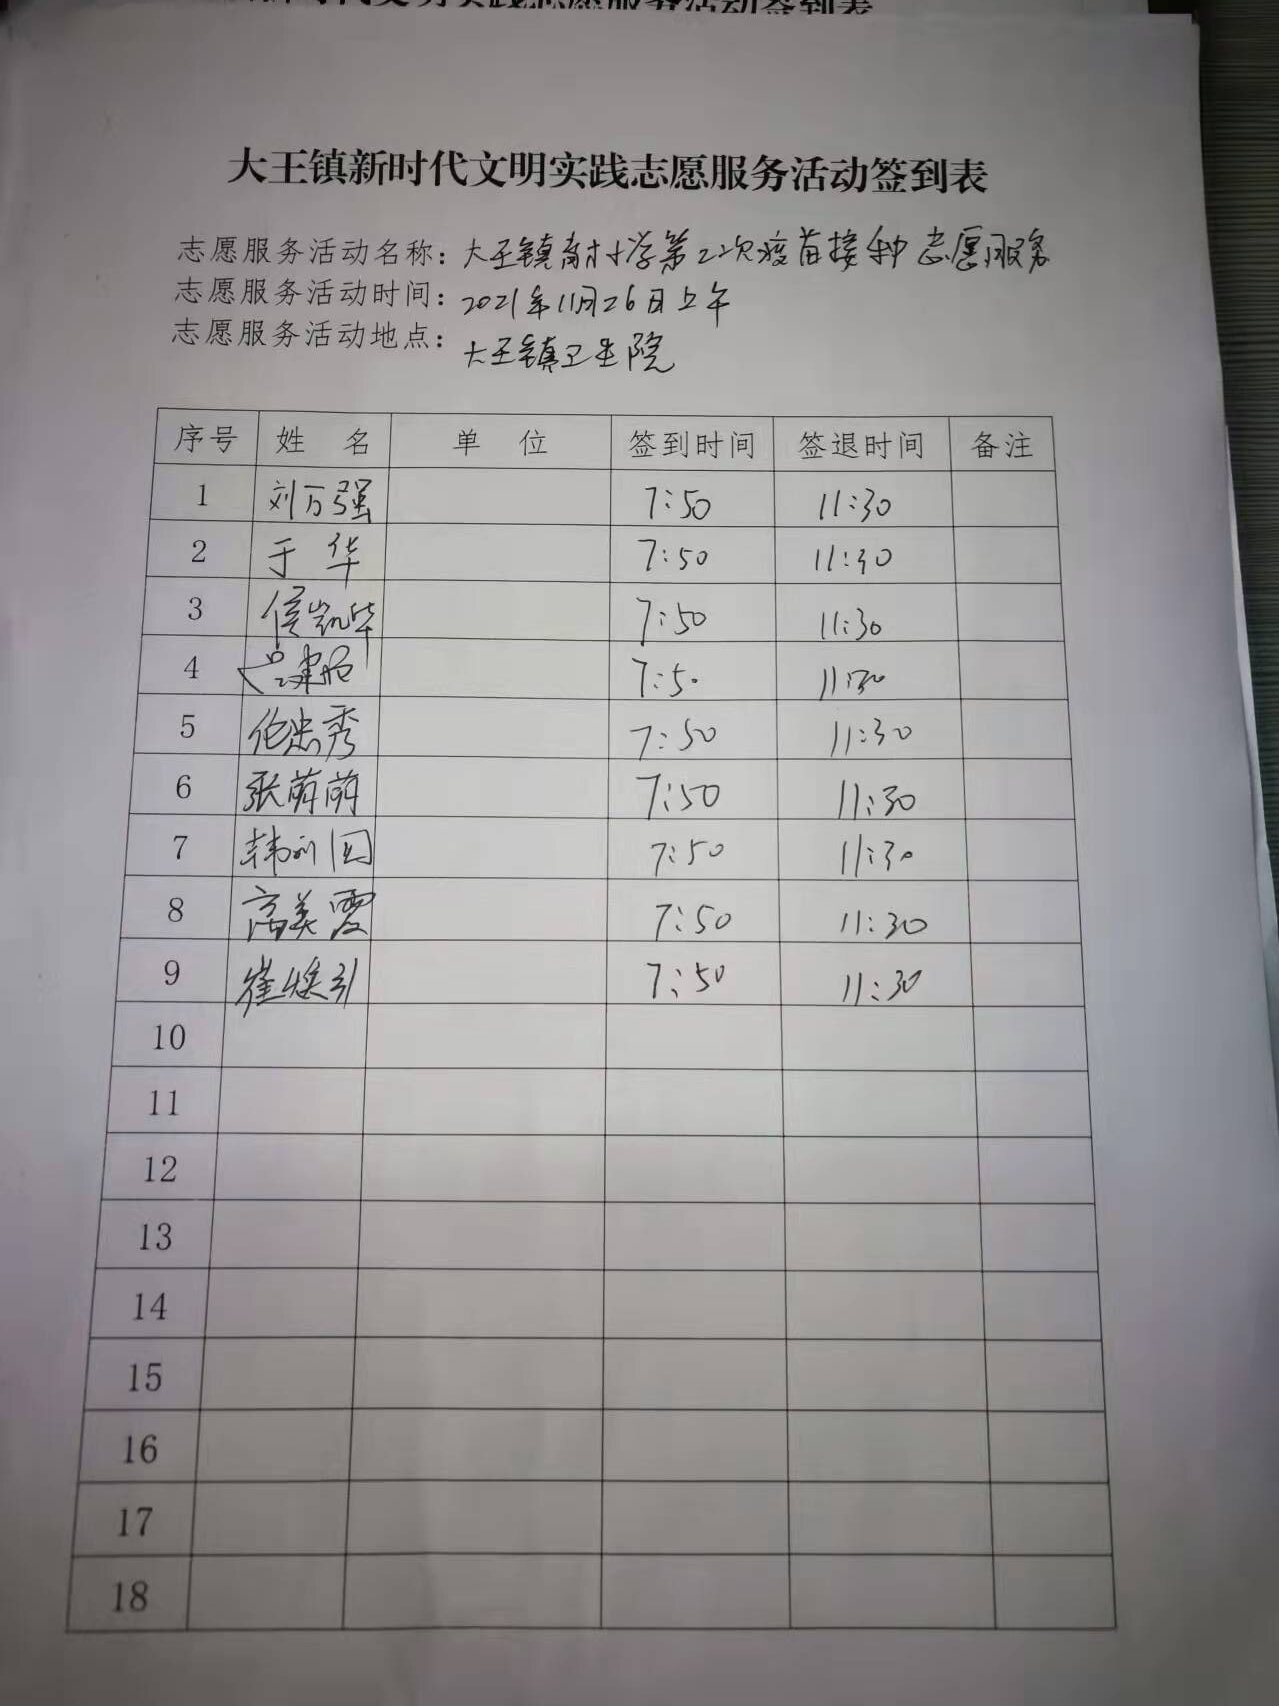 大王镇新时代文明实践志愿服务活动签到表
志愿服务活动名称：大王镇 小学第2次疫苗接种志愿服务
志愿服务活动时间：2021年11月26日上午
志愿服务活动地点：大王镇卫生院
序号 姓 名 单 位 签到时间 签退时间 备注
1 刘万强 7:50 11:30
2 于 华 7:50 11:30
3 侯凯华 7:50 11:30
4 7:50 11:30
5 伦忠秀 7:50 11:30
6 张萌萌 7:50 11:30
7 7:50 11:30
8 高美霞 7:50 11:30
9 7:50 11:30
10
11
12
13
14
15
16
17
18